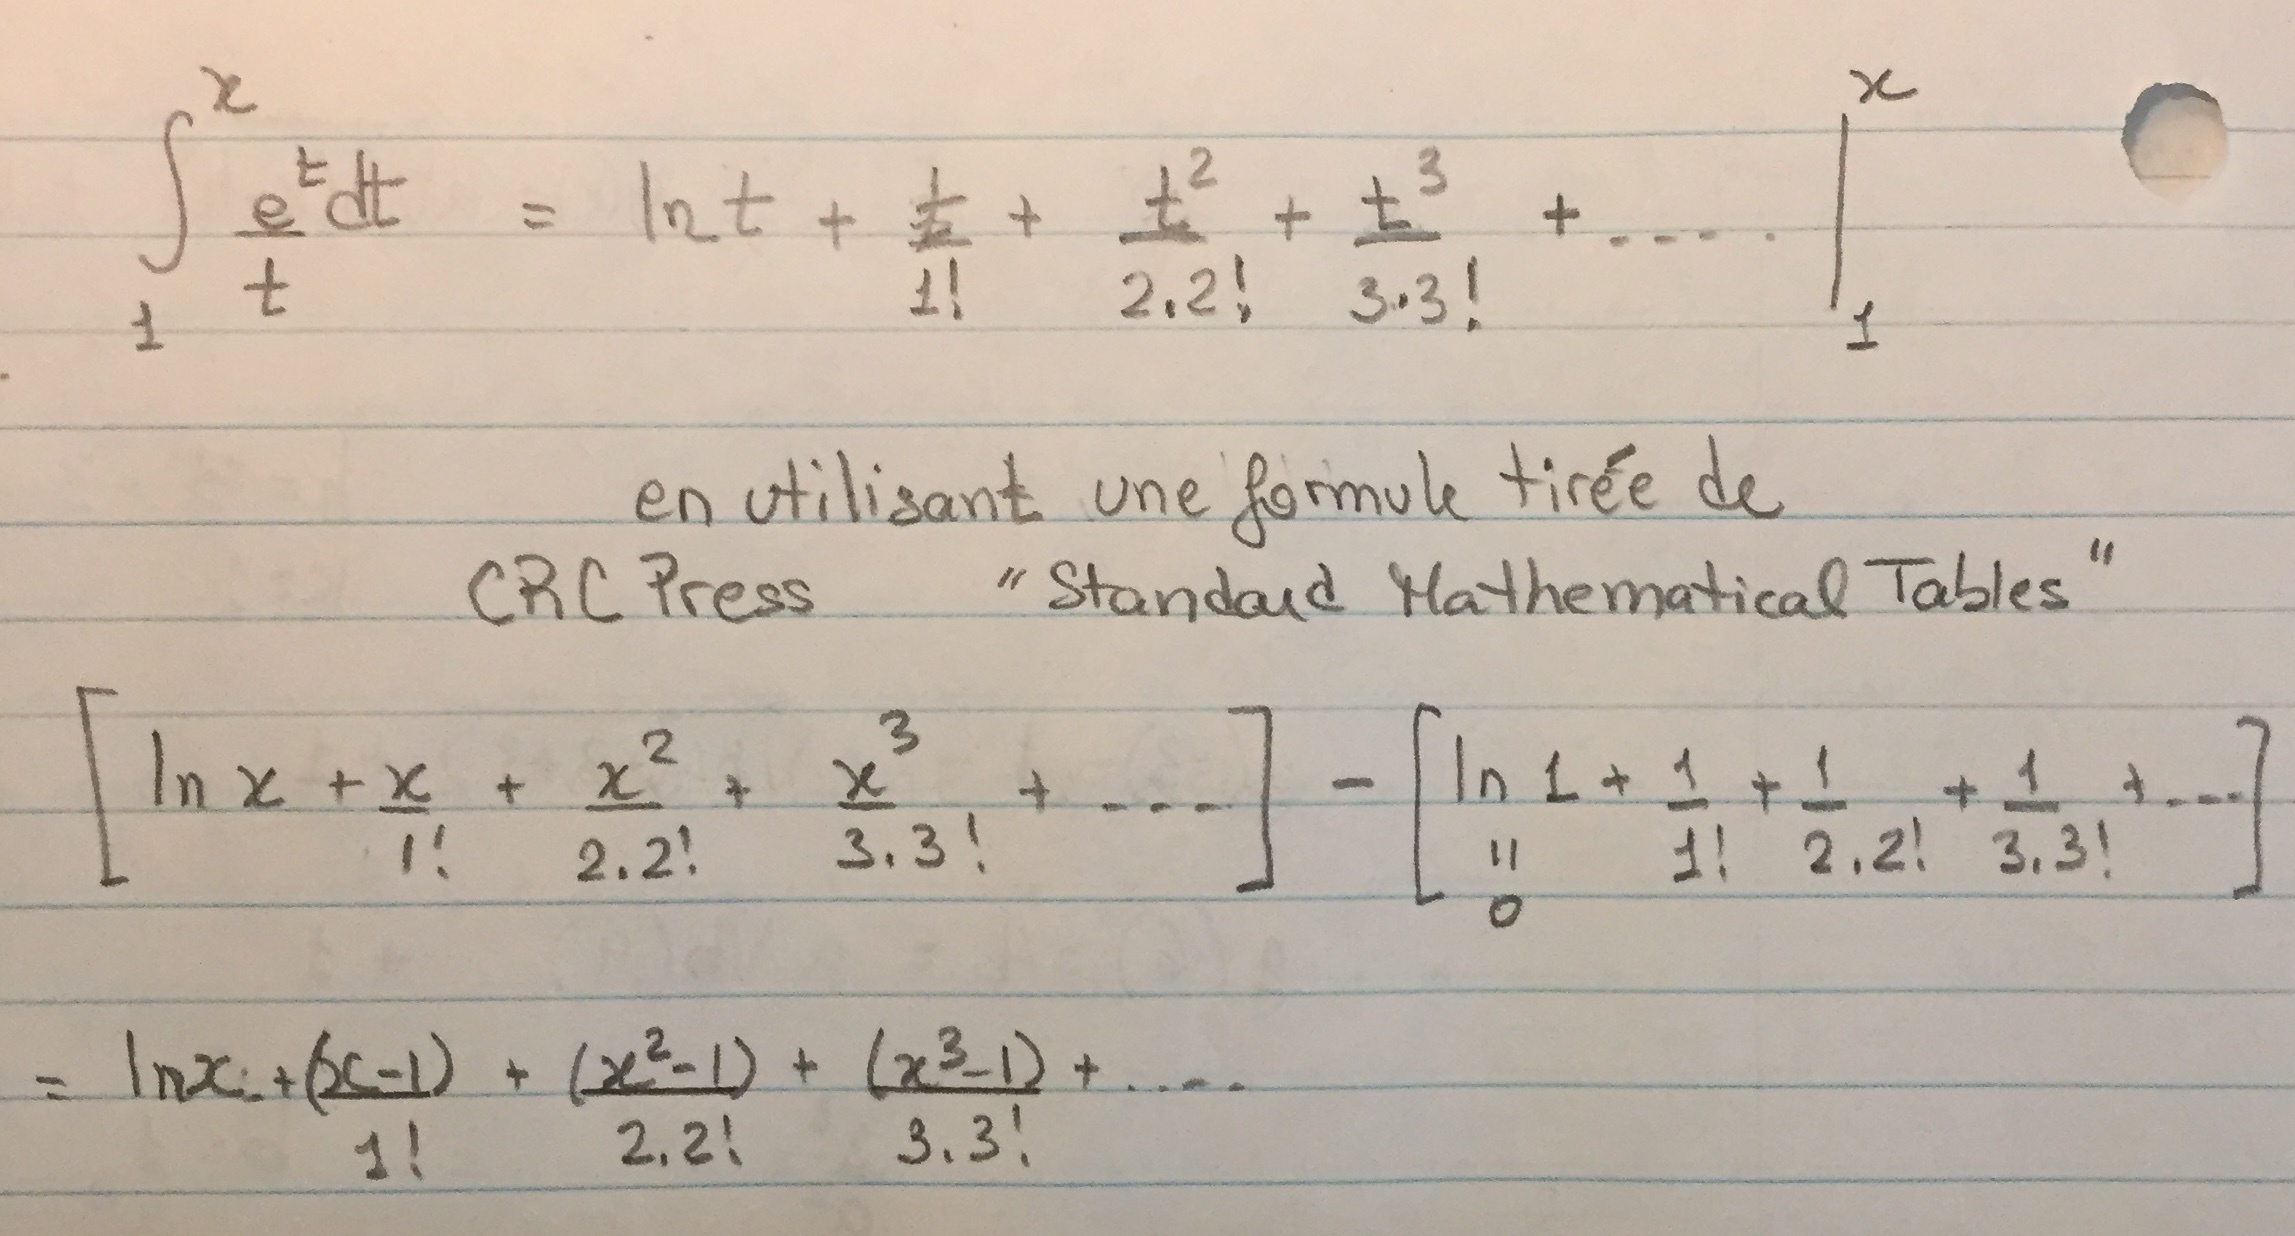 ∫₁ˣ eᵗ/t dt = ln t + t/1! + t²/2.2! + t³/3.3! + ..... |₁ˣ
en utilisant une formule tirée de
CRC Press "Standard Mathematical Tables"
[ln x + x/1! + x²/2.2! + x³/3.3! + ....] - [ln 1 + 1/1! + 1/2.2! + 1/3.3! + ....]
"
0
= ln x + (x-1)/1! + (x²-1)/2.2! + (x³-1)/3.3! + .....